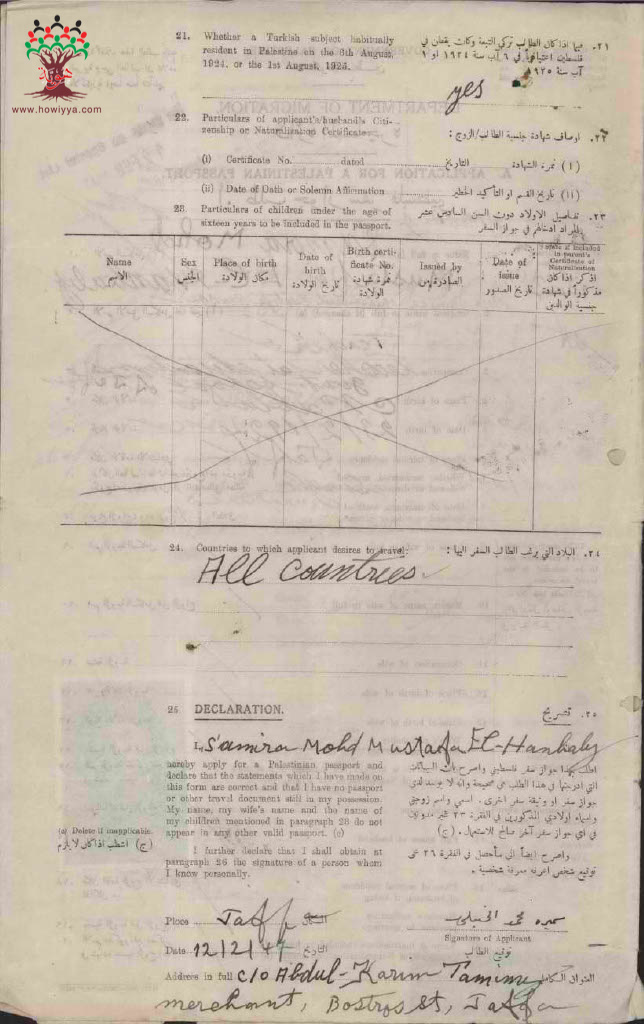 www.howiyya.com
21. Whether a Turkish subject habitually
resident in Palestine on the 6th August,
1924, or the 1st August, 1925.
٢١. فيما اذا كان الطالب تركي التبعة وكان يقطن في
فلسطين اعتيادياً في ٦ آب سنة ١٩٢٤ او ١
آب سنة ١٩٢٥
yes
22. Particulars of applicant's/husband's Citi-
zenship or Naturalization Certificate:
٢٢. اوصاف شهادة جنسية الطالب/الزوج:
(i) Certificate No. dated التاريخ (١) نمرة الشهادة
(ii) Date of Oath or Solemn Affirmation (١١) تاريخ القسم او التأكيد الخطير
23. Particulars of children under the age of
sixteen years to be included in the passport.
٢٣. تفاصيل الاولاد دون السن السادس عشر
المراد ادخالهم في جواز السفر
Name الاسم
Sex الجنس
Place of birth مكان الولادة
Date of birth تاريخ الولادة
Birth certi-
ficate No. نمرة شهادة الولادة
Issued by الصادرة من
Date of issue تاريخ الصدور
State if included
in parent's
Certificate of
Naturalization
اذكر اذا كان
مذكوراً في شهادة
جنسية الوالدين
24. Countries to which applicant desires to travel: ٢٤. البلاد التي يرغب الطالب السفر اليها:
All Countries
25. DECLARATION. ٢٥. تصريح
I, Samira Mohd Mustafa El-Hanbaly
hereby apply for a Palestinian passport and
declare that the statements which I have made on
this form are correct and that I have no passport
or other travel document still in my possession.
My name, my wife's name and the name of
my children mentioned in paragraph 23 do not
appear in any other valid passport. (c)
اطلب بهذا جواز سفر فلسطيني واصرح بان البيانات
التي ادرجتها في هذا الطلب هي صحيحة وانه لا يوجد لدي
جواز سفر او وثيقة سفر اخرى. اسمي واسم زوجتي
واسماء اولادي المذكورين في الفقرة ٢٣ غير مدونين
في أي جواز سفر آخر صالح للاستعمال. (ج)
(c) Delete if inapplicable.
(ج) اشطب اذا كان لا يلزم
I further declare that I shall obtain at
paragraph 26 the signature of a person whom
I know personally.
واصرح ايضاً اني سأحصل في الفقرة ٢٦ على
توقيع شخص اعرفه معرفة شخصية.
Place Jaffa المكان
سميره محمد الحنبلي
Signature of Applicant
توقيع الطالب
Date 12/2/47 التاريخ
Address in full c/o Abdul-Karim Tamimy العنوان الكامل
merchant, Bostros St, Jaffa